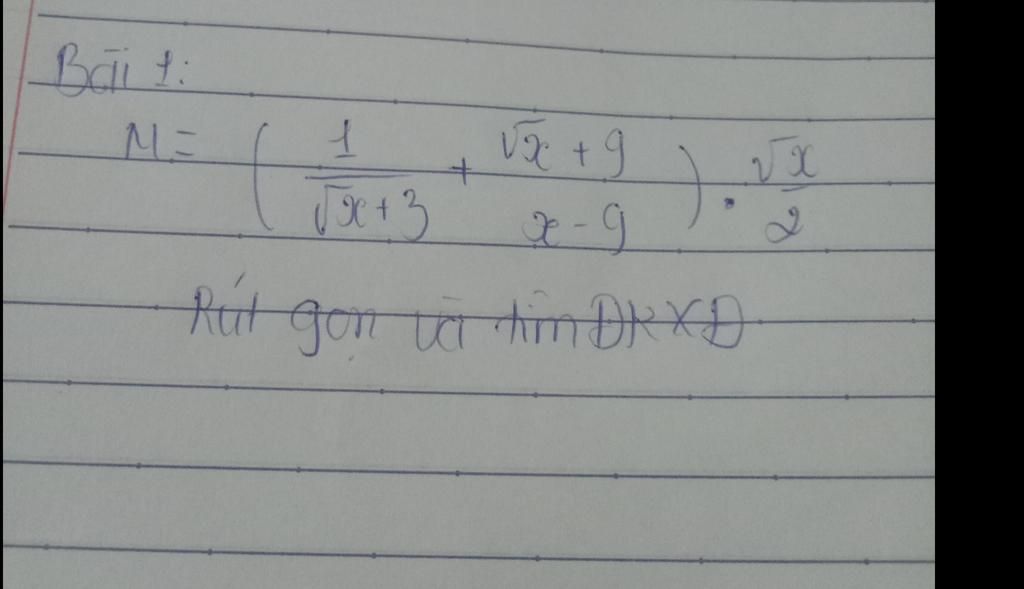 Bài 1:
M = ( 1/(√x + 3) + (√x + 9)/(x - 9) ) . √x/2
Rút gọn và tìm ĐKXĐ